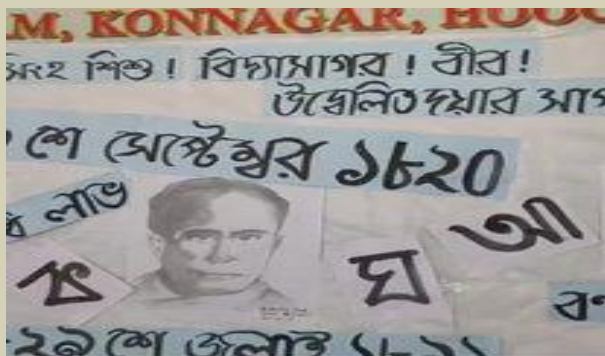 M, KONNAGAR, HOOG
সিংহ শিশু ! বিদ্যাসাগর ! বীর !
উদ্বেলিত দয়ার সাগ
শে সেপ্টেম্বর ১৮২০
লাভ
ঘ আ
২৯ শে জুলাই ১৮৯১